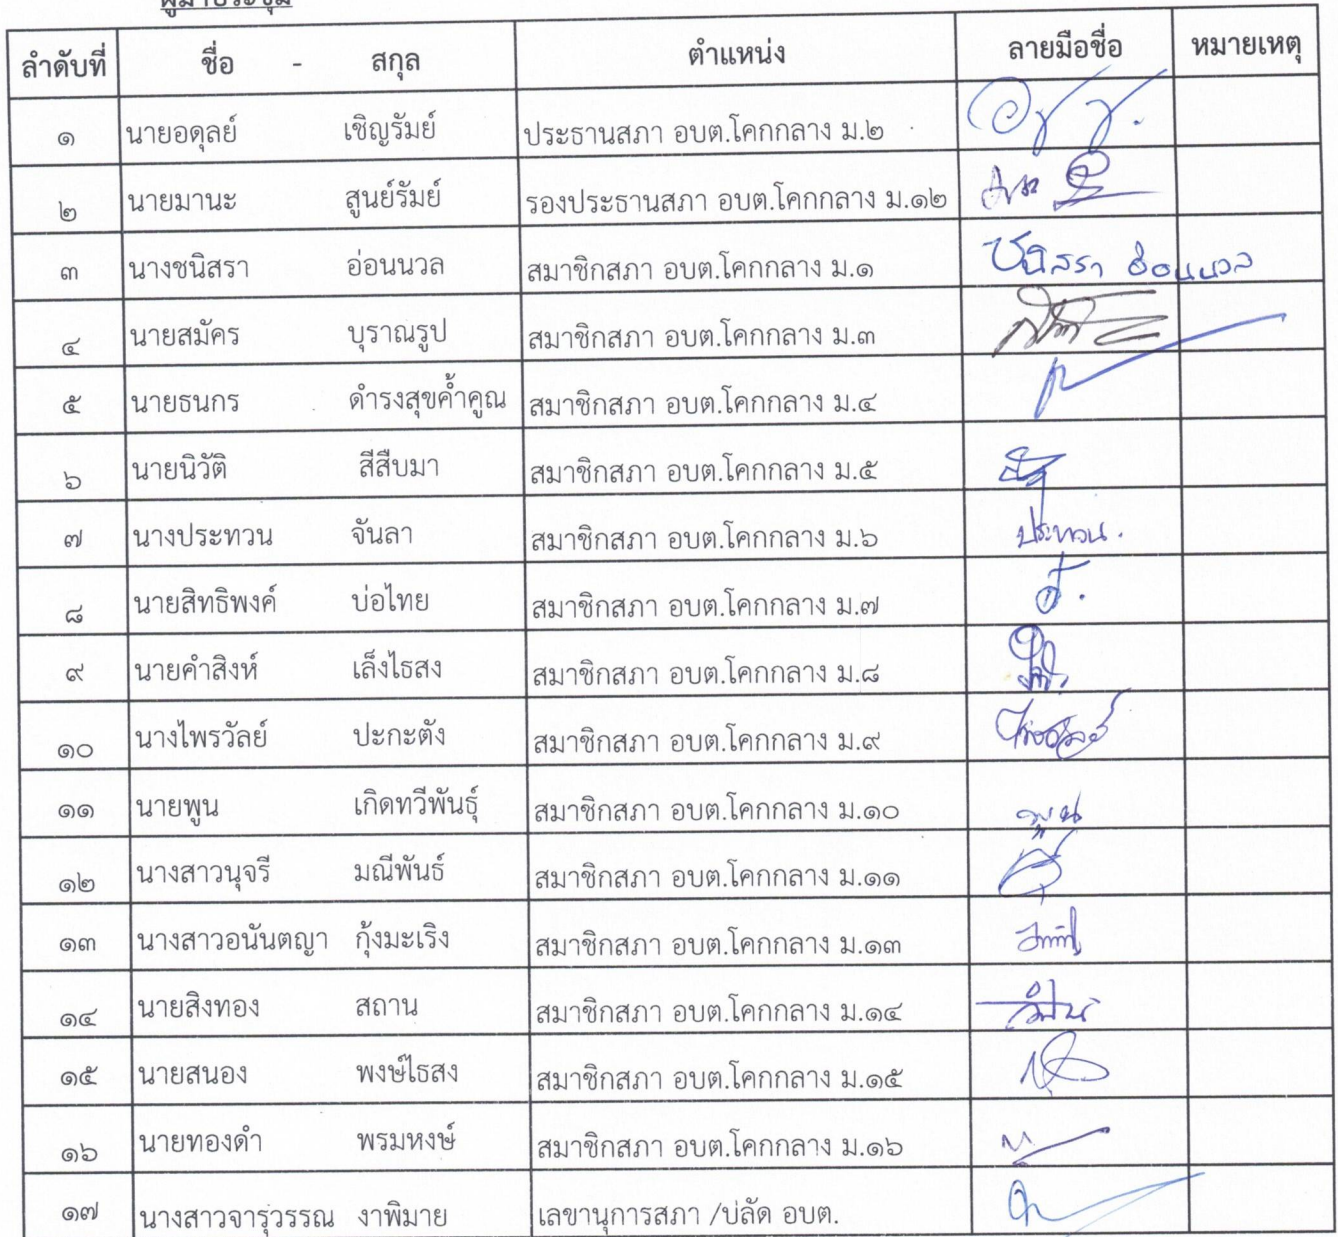 ผู้มาประชุม
ลำดับที่ ชื่อ - สกุล ตำแหน่ง ลายมือชื่อ หมายเหตุ
๑ นายอดุลย์ เชิญรัมย์ ประธานสภา อบต.โคกกลาง ม.๒
๒ นายมานะ สูนย์รัมย์ รองประธานสภา อบต.โคกกลาง ม.๑๒
๓ นางชนิสรา อ่อนนวล สมาชิกสภา อบต.โคกกลาง ม.๑ ชนิสรา อ่อนนวล
๔ นายสมัคร บุราณรูป สมาชิกสภา อบต.โคกกลาง ม.๓
๕ นายธนกร ดำรงสุขค้ำคูณ สมาชิกสภา อบต.โคกกลาง ม.๔
๖ นายนิวัติ สีสืบมา สมาชิกสภา อบต.โคกกลาง ม.๕
๗ นางประทวน จันลา สมาชิกสภา อบต.โคกกลาง ม.๖ ประทวน.
๘ นายสิทธิพงค์ บ่อไทย สมาชิกสภา อบต.โคกกลาง ม.๗
๙ นายคำสิงห์ เล็งไธสง สมาชิกสภา อบต.โคกกลาง ม.๘
๑๐ นางไพรวัลย์ ปะกะตัง สมาชิกสภา อบต.โคกกลาง ม.๙ ไพรวัลย์
๑๑ นายพูน เกิดทวีพันธุ์ สมาชิกสภา อบต.โคกกลาง ม.๑๐ พูน
๑๒ นางสาวนุจรี มณีพันธ์ สมาชิกสภา อบต.โคกกลาง ม.๑๑
๑๓ นางสาวอนันตญา กุ้งมะเริง สมาชิกสภา อบต.โคกกลาง ม.๑๓
๑๔ นายสิงทอง สถาน สมาชิกสภา อบต.โคกกลาง ม.๑๔
๑๕ นายสนอง พงษ์ไธสง สมาชิกสภา อบต.โคกกลาง ม.๑๕
๑๖ นายทองดำ พรมหงษ์ สมาชิกสภา อบต.โคกกลาง ม.๑๖
๑๗ นางสาวจารุวรรณ งาพิมาย เลขานุการสภา /ปลัด อบต.